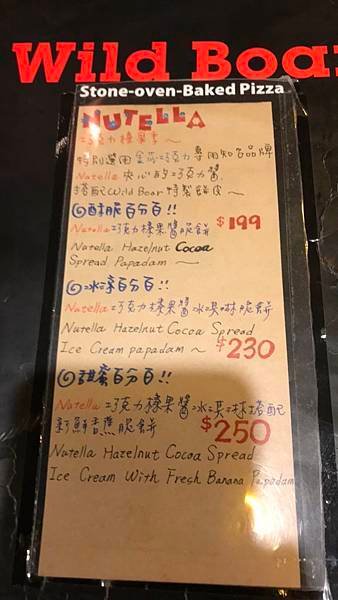 Wild Boar
Stone-oven-Baked Pizza
NUTELLA
巧克力榛果醬~
特別選用金莎巧克力專用知名品牌
Nutella 夾心的巧克力醬
搭配Wild Boar特製餅皮~
酥脆百分百!!
Nutella 巧克力榛果醬脆餅 $199
Nutella Hazelnut Cocoa
Spread Papadam ~
冰涼百分百!!
Nutella 巧克力榛果醬冰淇淋脆餅
Nutella Hazelnut Cocoa Spread
Ice Cream papadam ~ $230
甜蜜百分百!!
Nutella 巧克力榛果醬冰淇淋搭配
新鮮香蕉脆餅 $250
Nutella Hazelnut Cocoa Spread
Ice Cream With Fresh Banana Papadam